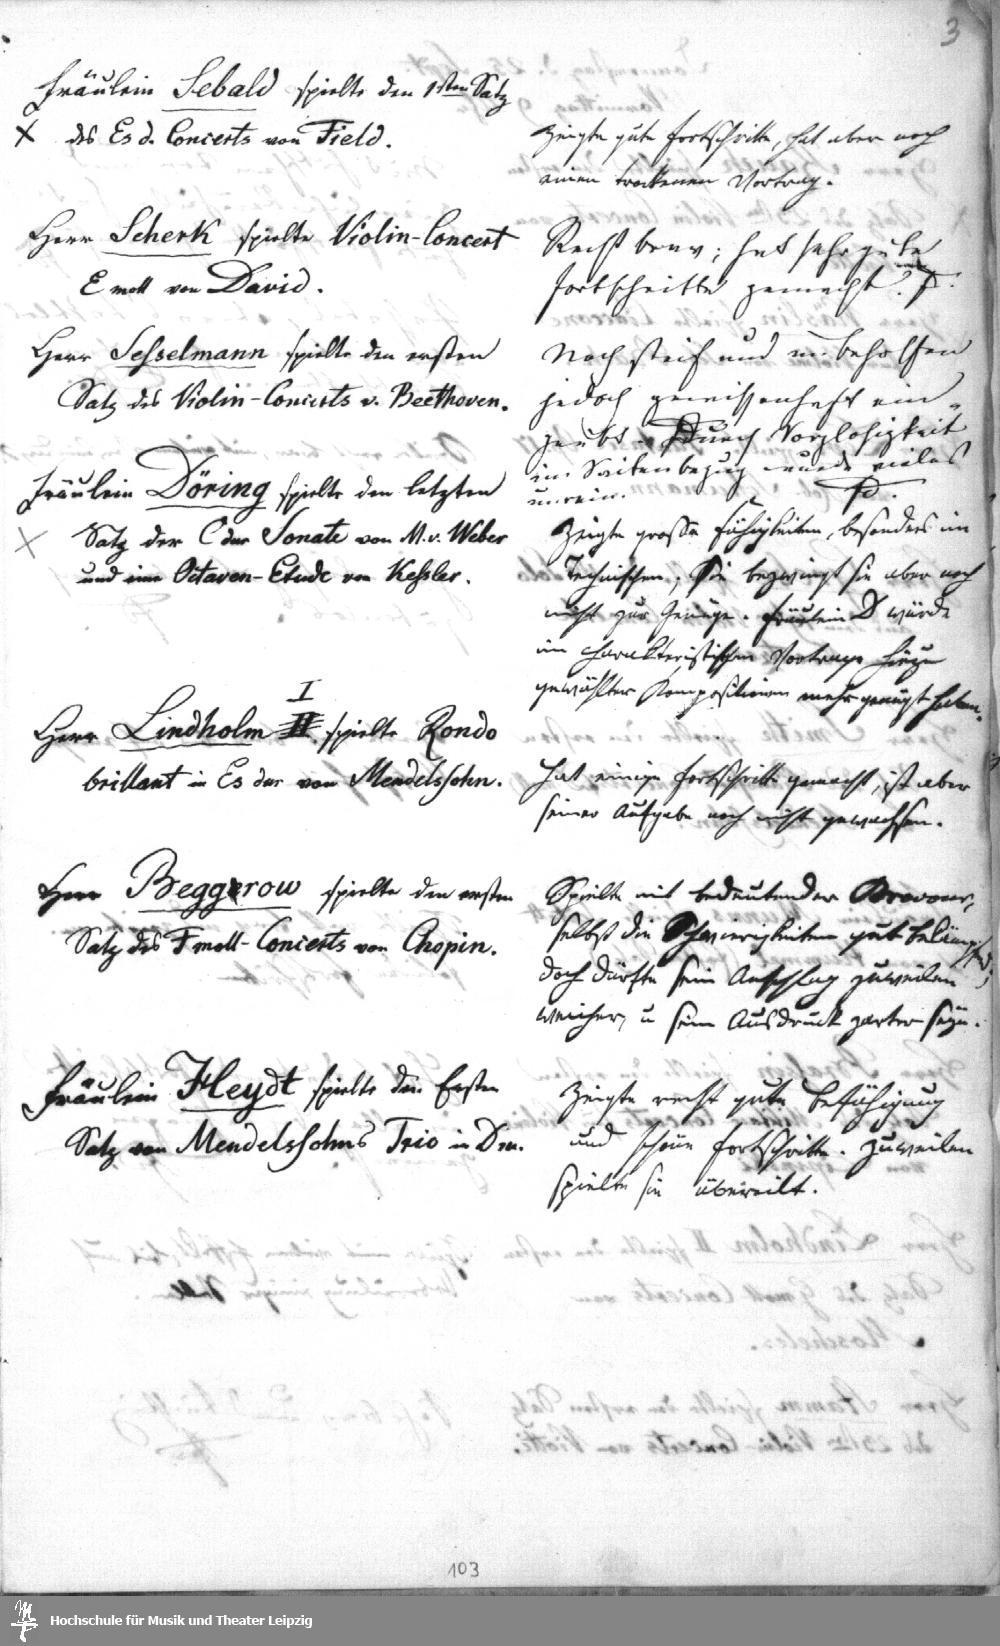 3
Fräulein Sebald spielte den 1sten Satz
X des Es d. Concerts von Field.
Zeigte gute Fortschritte, hat aber noch
einen trockenen Vortrag.
Herr Scherk spielte Violin-Concert
E moll von David.
Recht brav; hat sehr gute
Fortschritte gemacht.
Herr Sesselmann spielte den ersten
Satz des Violin-Concerts v. Beethoven.
Noch steif und unbeholfen
jedoch gewissenhaft ein-
geübt. Durch Sorglosigkeit
im Saitenbezug wurde vieles
unrein.
Fräulein Döring spielte den letzten
X Satz der C dur Sonate von M. v. Weber
und eine Octaven-Etude von Kessler.
Zeigte große Fähigkeiten, besonders im
Technischen; Sie bezwingt sie aber noch
nicht zur Genüge. Fräulein D würde
im charakteristischen Vortrage hiezu
gewählter Kompositionen mehr genügt haben.
I
Herr Lindholm II spielte Rondo
brillant in Es dur von Mendelssohn.
Hat einige Fortschritte gemacht, ist aber
seiner Aufgabe noch nicht gewachsen.
Herr Beggerow spielte den ersten
Satz des F moll-Concerts von Chopin.
Spielte mit bedeutender Bravour,
selbst die Schwierigkeiten gut bekämpfend,
doch dürfte sein Anschlag zuweilen
weicher, u sein Ausdruck zarter seyn.
Fräulein Heydt spielte den Ersten
Satz von Mendelssohns Trio in D m.
Zeigte recht gute Befähigung
und schöne Fortschritte. Zuweilen
spielte sie übereilt.
103
Hochschule für Musik und Theater Leipzig